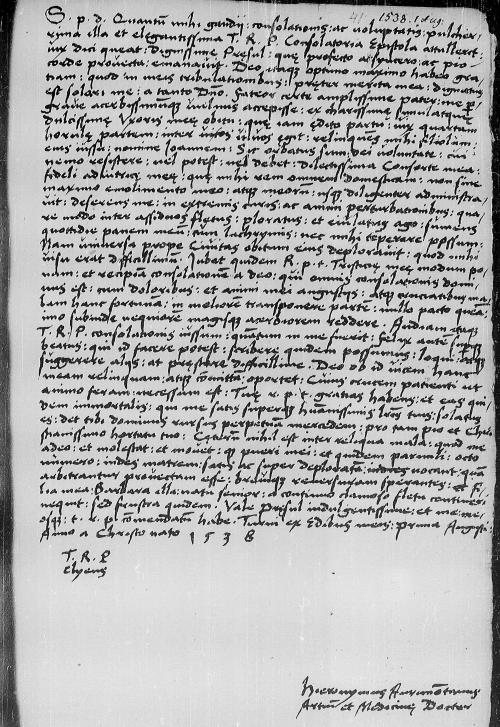 41 1538. 1 Aug.
S. p. d. Quantū mihi gaudij: consolationis: ac voluptatis: pulcher-
rima illa et elegantissima T. R. P. Consolatoria Epistola attulerit:
vix dici queat: dignissime Presul: quę profecto ab syncero: ac pio
corde provecta: emanavit. Deo itaq optimo maximo habeo gra-
tiam: quod in meis tribulationibus: pręter merita mea: dignatus
est solari me: a tanto Dno. Fateor certe amplissime pater: me p
grave acerbissimūq vulnus accepisse: ex charissime simulatque
dulcissimę Vxoris meę obitu: quę iam edito partu: vix quartam
horulę partem: inter vivos vivens egit: relinquens mihi filiolum:
eius iussu: nomine Ioannem: Sic orbatus sum: dei voluntate: cui
nemo resistere: vel potest: vel debet: dolcissima Consorte mea:
fideli adiutrice mea: quę mihi rem omnem domesticam: non sine
maximo emolimento meo: atque meorū: usq diligenter administra-
vit: deserens me: in extremis curis: ac animi perturbationibus: qua-
re modo inter assiduos fletus: ploratus: et eiulatus ago: sumens
quottidie panem meum: cum lachrymis: nec mihi temperare possum:
Nam universa prope Civitas obitum eius deploravit: quod mihi
visu erat difficillimum. Iubet quidem R. p. t. Tristicię meę modum po-
nam: et recipiam consolationem a deo: qui omnis consolationis domi-
nus est: cum doloribus: et animi mei angustijs: atq cruciatibus ma-
lam hanc fortunam: in meliorē transponere partē: nullo pacto queā:
imo subinde nequiorē magisq acerbiorem reddere. Audiam itaq
T. R. P. consolationis iussum: quantum in me fuerit: felix ante superq
beatus: qui id facere potest: scribere quidem possumus: loqui: atq
suggerere alijs: at pręstare difficillime. Deo ob id vicem hanc
meam relinquam: atq cōmittā oportet: Cuius crucem patienti ut
animo feram: necessum est. Tuę r. p. t. gratias habens: et eas qui-
dem immortalis: qui me satis superque humanissimis lris tuis: solatus
es: det tibi dominus rursus perpetuam mercedem: pro tam pio et Chri-
stianissimo hortatu tuo: Cęterum nihil est inter reliqua mala: quod me
adeo: et molestat: et movet: q pueri mei: et quidem parvuli: octo
numero: indies matrem: satis ac super deploratā: vocant: quā
arbitrantur provectam esse: brevique reversuram sperantes: et fi-
lia mea: Barbara illa: natu senior: a continuo clamoso fletu contineri
nequit: sed frustra quidem. Vale Presul indulgentissime: et me: me-
osq: t. r. p. cōmendatū habe. Turni ex Edibus meis: prima Augusti
Anno a Christo nato 1 5 3 8
T. R. P
Clyens
Hieronymus
Artiū et Medicinę Doctor